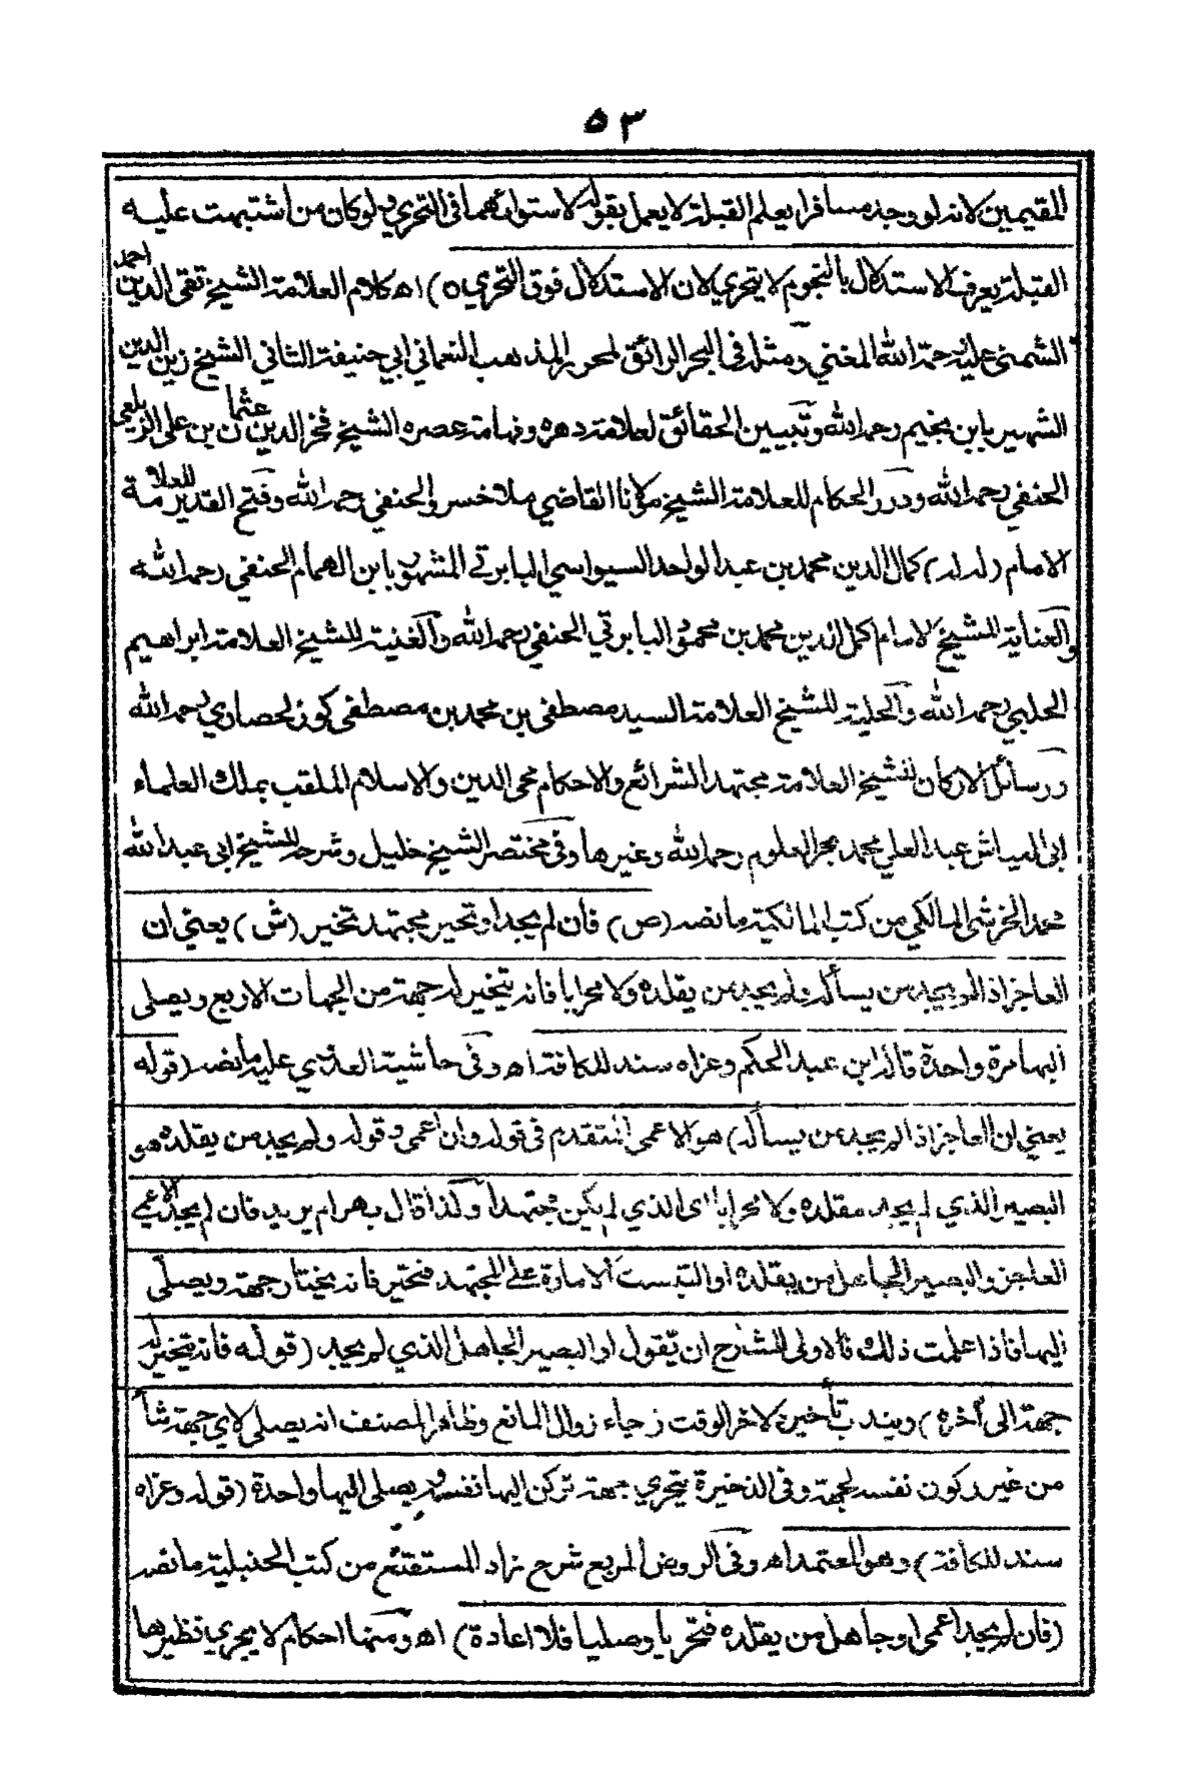 ٥٣
المقيمين لانه لو وجد مسافرا يعلم القبلة لا يعمل بقوله لاستوائهما في التحري ولو كان من اشتبهت عليه
القبلة يعرف الاستدلال بالنجوم لا يتحرى لان الاستدلال فوق التحري ٥) اه كلام العلامة الشيخ تقي الدين احمد
الشمني عليه رحمة الله المغني ومثله في البحر الرائق لمحرر المذهب النعماني ابي حنيفة الثاني الشيخ زين الدين
الشهير بابن نجيم رحمه الله وتبيين الحقائق لعلامة دهره وفهامة عصره الشيخ فخر الدين عثمان بن علي الزيلعي
الحنفي رحمه الله ودرر الحكام للعلامة الشيخ مولانا القاضي ملا خسرو الحنفي رحمه الله وفتح القدير للعلامة
الامام كمال الدين محمد بن عبد الواحد السيواسي البابرتي المشهور بابن الهمام الحنفي رحمه الله
والعناية للشيخ الامام اكمل الدين محمد بن محمود البابرتي الحنفي رحمه الله والغنية للشيخ العلامة ابراهيم
الحلبي رحمه الله والحلية للشيخ العلامة السيد مصطفى بن محمد بن مصطفى كوزلحصاري رحمه الله
ورسائل الاركان للشيخ العلامة مجتهد الشرائع والاحكام محي الدين والاسلام الملقب بملك العلماء
ابي العياش عبد العلي محمد بحر العلوم رحمه الله وغيرها وفي مختصر الشيخ خليل وشرحه للشيخ ابي عبد الله
محمد الخرشي المالكي من كتب المالكية ما نصه (ص) فان لم يجد او تحير مجتهد تخير (ش) يعني ان
العاجز اذا لم يجد من يسأله ولم يجد من يقلده ولا محرابا فانه يتخير له جهة من الجهات الاربع ويصلي
اليها مرة واحدة قاله ابن عبد الحكم وعزاه سند للكافة اه وفي حاشية العدوي عليه ما نصه (قوله
يعني ان العاجز اذا لم يجد من يسأله) هو الاعمى المتقدم في قوله وان اعمى وقوله ولم يجد من يقلده هو
البصير الذي لم يجد مقلده ولا محرابا اى الذي لم يكن مجتهدا وكذا قال بهرام يريد فان لم يجد الاعمى
العاجز والبصير الجاهل من يقلده او التبست الامارة على المجتهد فتحير فانه يختار جهة ويصلي
اليها فاذا علمت ذلك فالاولى للشارح ان يقول او البصير الجاهل الذي لم يجد (قوله فانه يتخير له
جهة الى آخره) ويندب تأخيره لاخر الوقت رجاء زوال المانع وظاهر المصنف انه يصلي لاي جهة شأ
من غير ركون نفسه لجهة وفي الذخيرة يتحرى جهة تركن اليها نفسه ويصلي اليها واحدة (قوله وعزاه
سند للكافة) وهو المعتمد اه وفي الروض المربع شرح زاد المستقنع من كتب الحنبلية ما نصه
(فان لم يجد اعمى او جاهل من يقلده فتحريا وصليا فلا اعادة) اه ومنها احكام لا يجري نظيرها